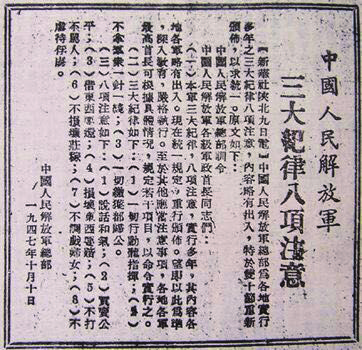 中國人民解放軍
三大紀律八項注意
【新華社陝北九日電】中國人民解放軍總部為各地實行
多年之三大紀律八項注意，內容略有出入，特於雙十節重新
頒佈，以求統一。原文如下：
中國人民解放軍總部訓令
中國人民解放軍各級軍政首長同志們：
（一）本軍三大紀律，八項注意，實行多年，其內容各
地各軍略有出入。現在統一規定，重行頒佈。望即以此為準
，深入教育，嚴格執行。至於其他應當注意事項，各地各軍
最高首長可根據具體情況，規定若干項目，以命令實行之。
（二）三大紀律如下：（１）一切行動聽指揮；（２）
不拿羣眾一針一線；（３）一切繳獲歸公。
（三）八項注意如下：（１）說話和氣；（２）買賣公
平；（３）借東西要還；（４）損壞東西要賠；（５）不打
人罵人；（６）不損壞莊稼；（７）不調戲婦女；（８）不
虐待俘虜。
中國人民解放軍總部
一九四七年十月十日